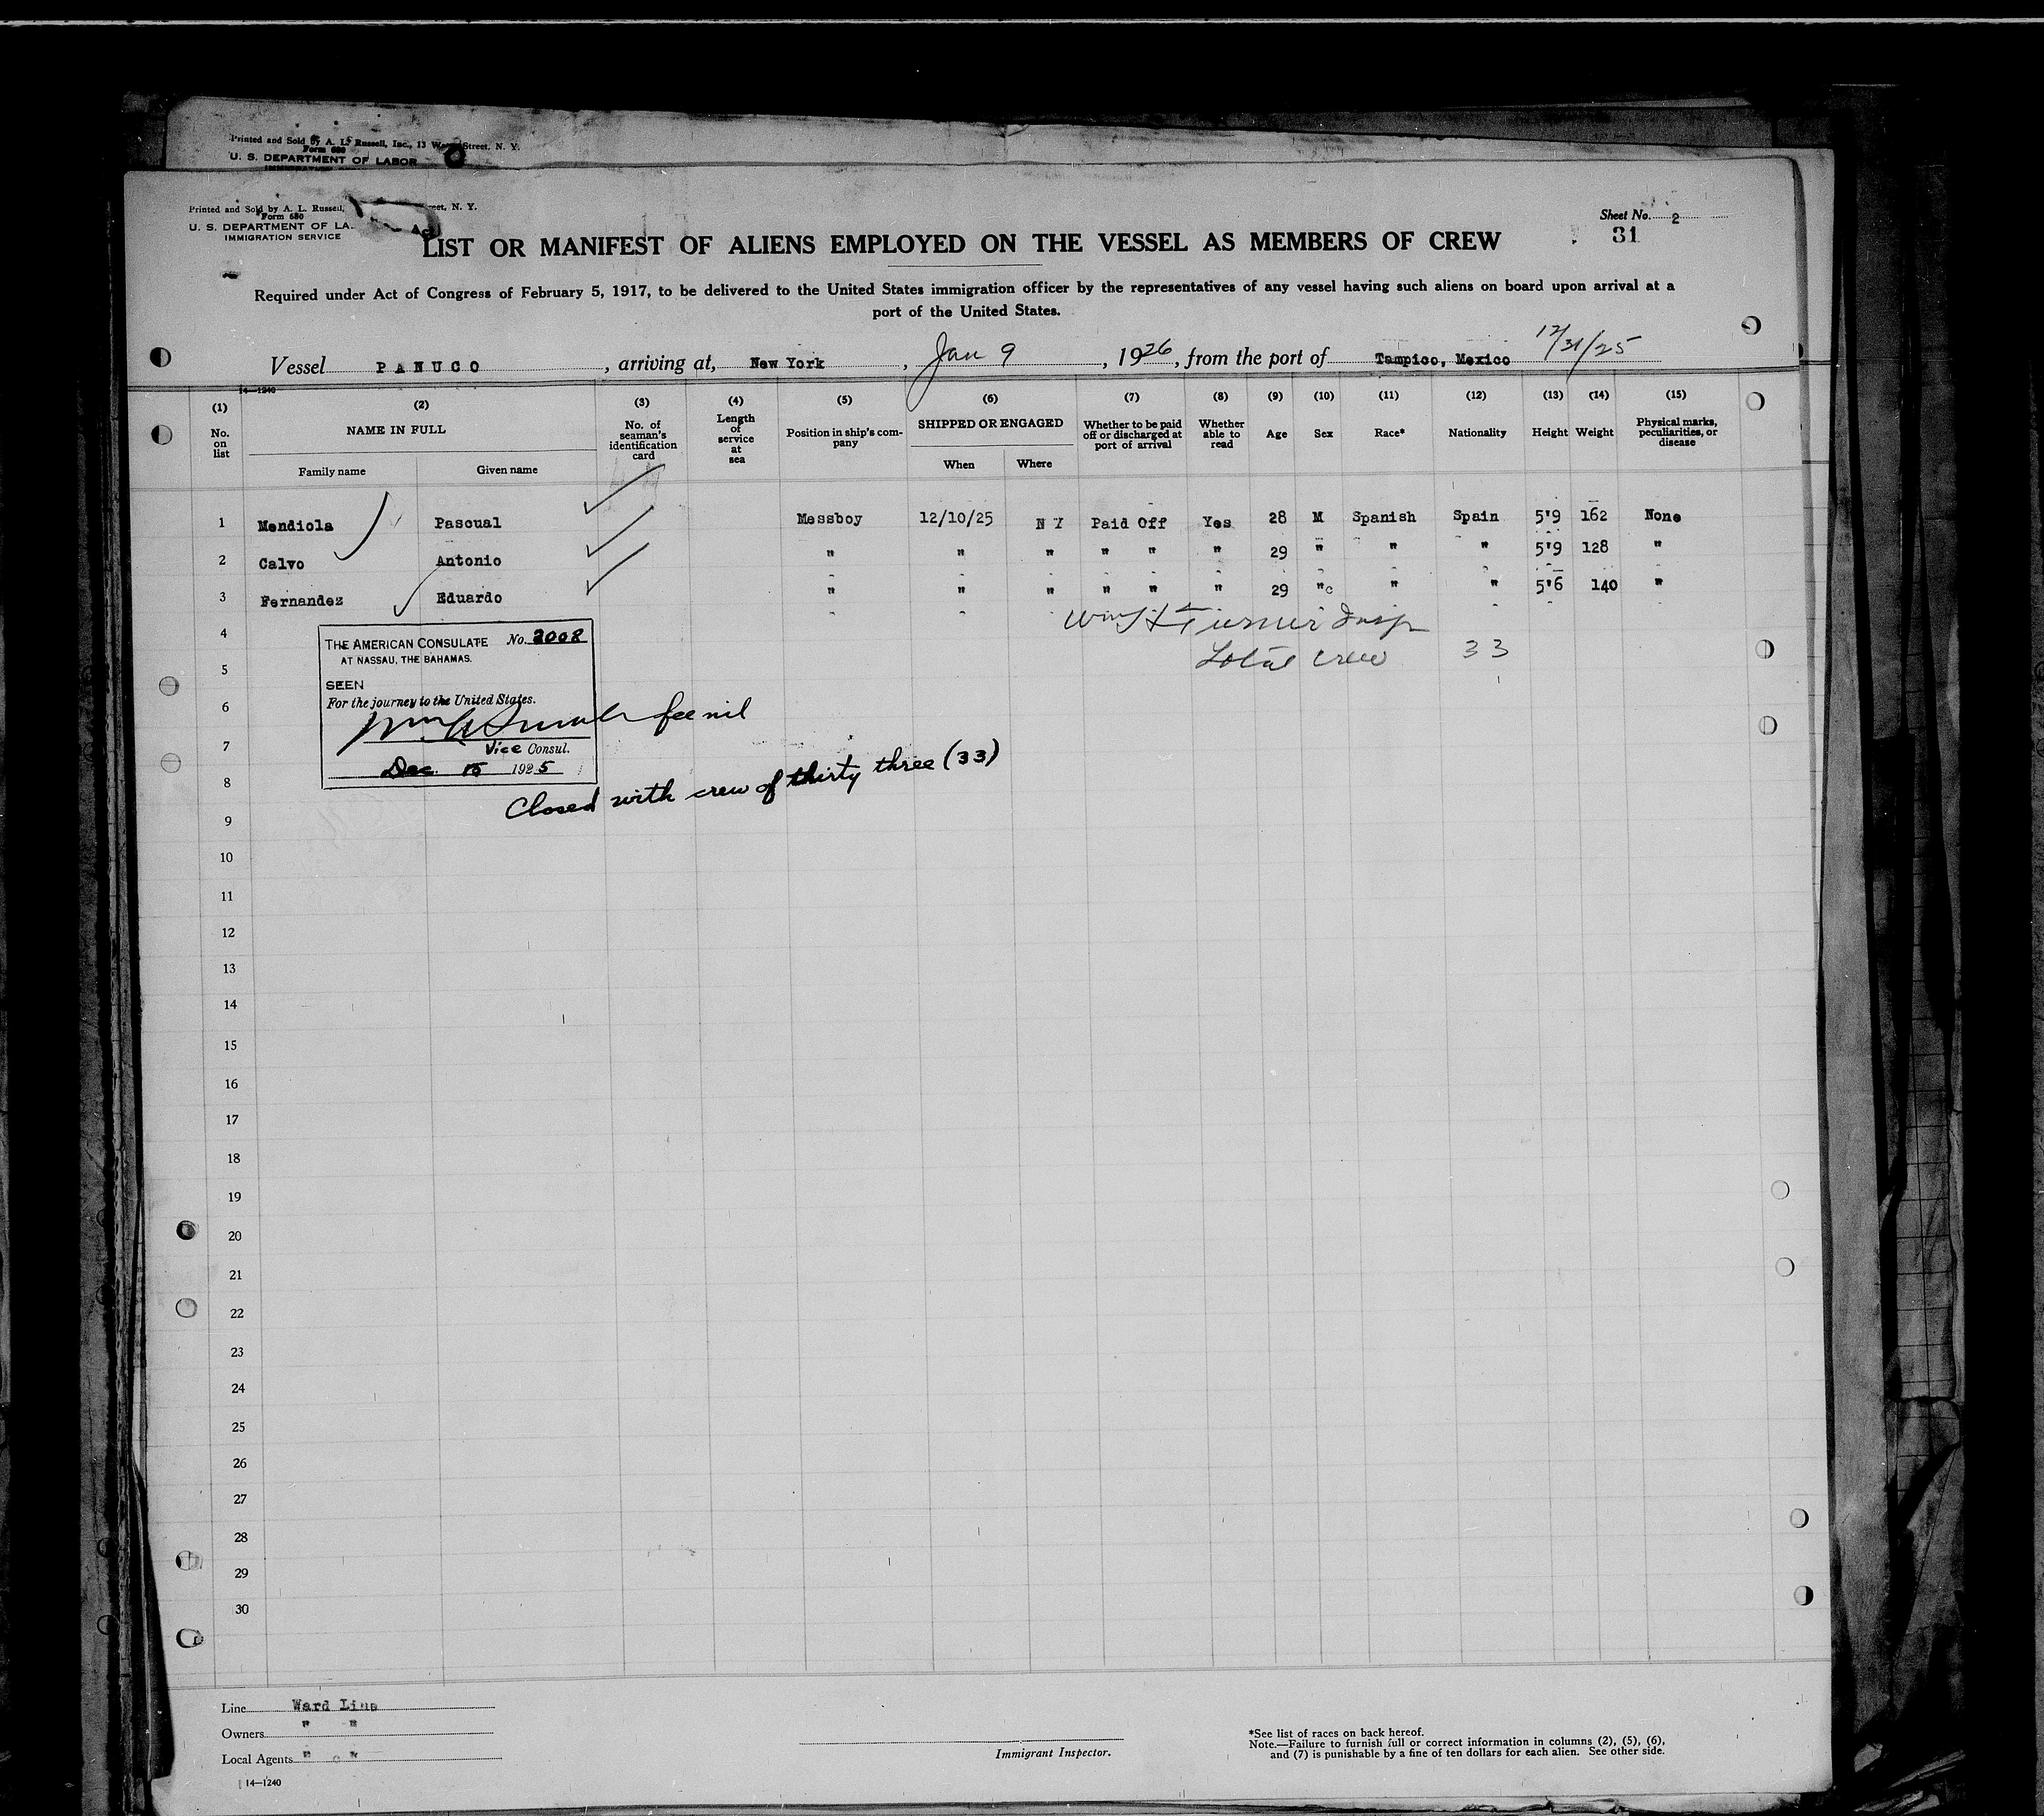 Printed and Sold by A. L. Russell, Inc., 13 Water Street. N. Y.
Form 680
U. S. DEPARTMENT OF LABOR
Printed and Sold by A. L. Russell, eet, N. Y.
Form 680
U. S. DEPARTMENT OF LA
IMMIGRATION SERVICE
Sheet No. 2
31
LIST OR MANIFEST OF ALIENS EMPLOYED ON THE VESSEL AS MEMBERS OF CREW
Required under Act of Congress of February 5, 1917, to be delivered to the United States immigration officer by the representatives of any vessel having such aliens on board upon arrival at a
port of the United States.
Vessel PANUCO, arriving at, New York, Jan 9, 1926, from the port of Tampico, Mexico 12/31/25
14—1240
(1) No. on list
(2) NAME IN FULL
Family name Given name
(3) No. of seaman's identification card
(4) Length of service at sea
(5) Position in ship's company
(6) SHIPPED OR ENGAGED
When Where
(7) Whether to be paid off or discharged at port of arrival
(8) Whether able to read
(9) Age
(10) Sex
(11) Race*
(12) Nationality
(13) Height
(14) Weight
(15) Physical marks, peculiarities, or disease
1 Mendiola Pascual Messboy 12/10/25 N Y Paid Off Yes 28 M Spanish Spain 5'9 162 None
2 Calvo Antonio " " " " " " 29 " " " 5'9 128 "
3 Fernandez Eduardo " " " " " " 29 " " " 5'6 140 "
4
Wm H Turner Insp
5
Total Crew 33
THE AMERICAN CONSULATE No. 2008
AT NASSAU, THE BAHAMAS.
SEEN
For the journey to the United States.
fee nil
Vice Consul.
Dec. 15 1925
Closed with crew of thirty three (33)
6
7
8
9
10
11
12
13
14
15
16
17
18
19
20
21
22
23
24
25
26
27
28
29
30
Line Ward Line
Owners " "
Local Agents " "
14—1240
Immigrant Inspector.
*See list of races on back hereof.
Note.—Failure to furnish full or correct information in columns (2), (5), (6),
and (7) is punishable by a fine of ten dollars for each alien. See other side.